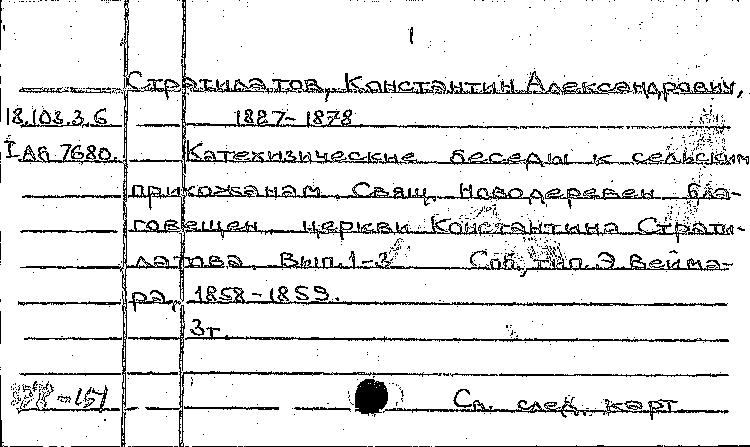 1
Стратилатов, Константин Александрович,
18.103.3.6 1887-1878
I АБ 7680. Катехизические беседы к сельским
прихожанам. Свящ. Новодеревен бла-
говещен. церкви Константина Страти-
латова. Вып. 1-3 Спб., тип. Э. Вейма-
ра, 1858-1859.
3т.
-151 См. след. карт